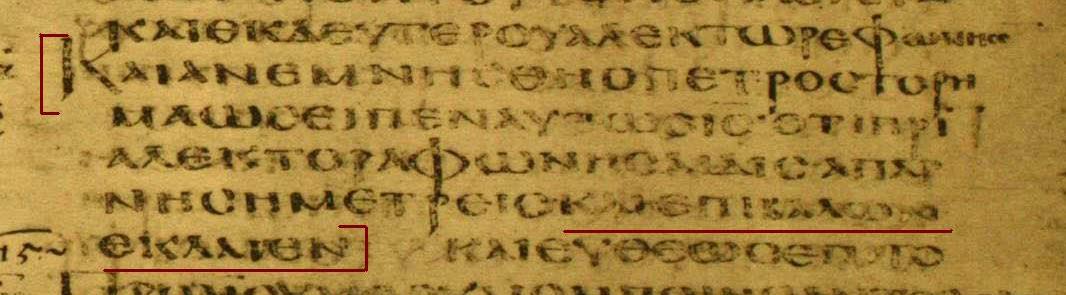 ΚΑΙΕΚΔΕΥΤΕΡΟΥΑΛΕΚΤΩΡΕΦΩΝΗϹΕ
ΚΑΙΑΝΕΜΝΗϹΘΗΟΠΕΤΡΟϹΤΟΡΗ
ΜΑΩϹΕΙΠΕΝΑΥΤΩΟΙϹ·ΟΤΙΠΡΙ
ΑΛΕΚΤΟΡΑΦΩΝΗϹΑΙΔΙϹΑΠΑΡ
ΝΗϹΗΜΕΤΡΕΙϹΚΑΙΕΠΙΒΑΛΩΝ
ΕΚΛΑΙΕΝ ΚΑΙΕΥΘΕΩϹΕΠΙΤΟ